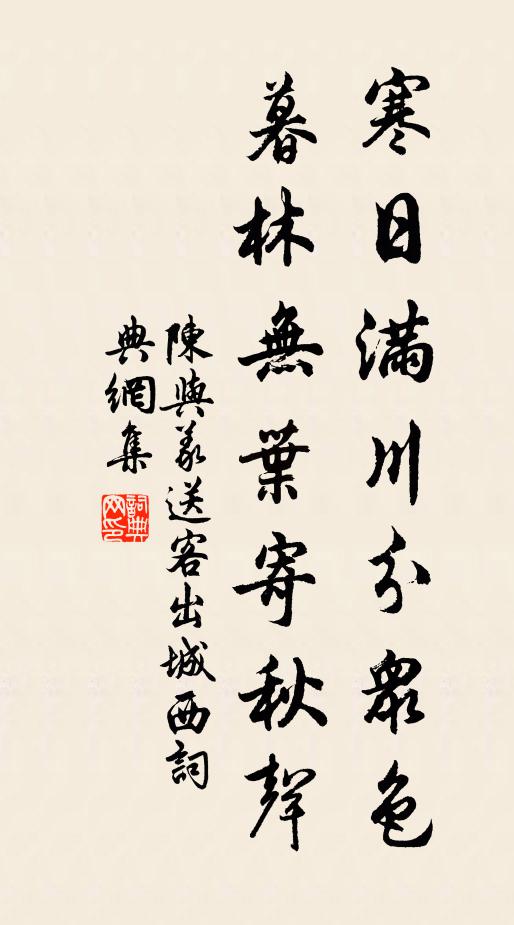 寒日滿川分衆色
暮林無葉寄秋聲
陳與義送客出城西詞
典網集
詞典網印